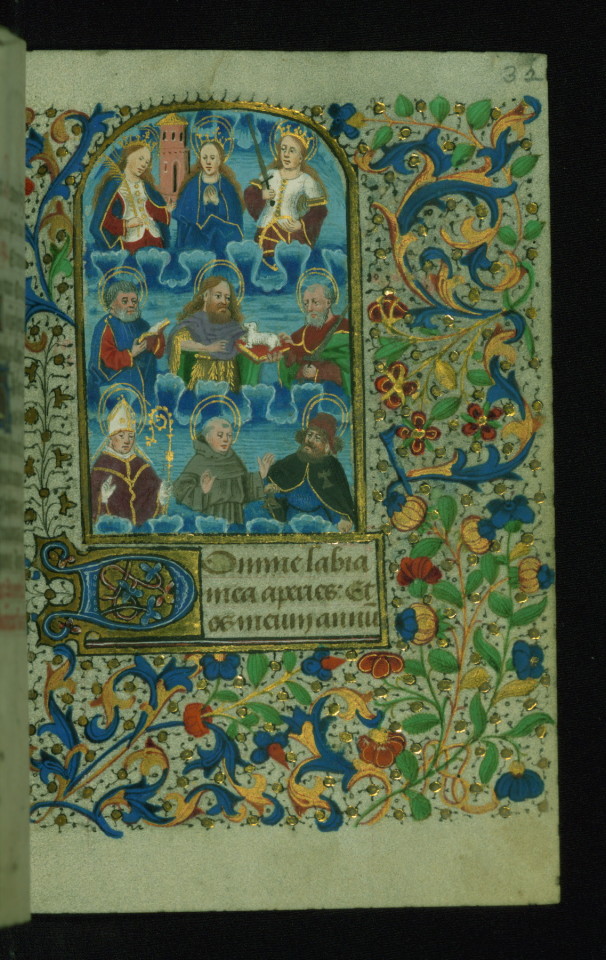 32
Domine labia
mea aperies: Et
os meum annu